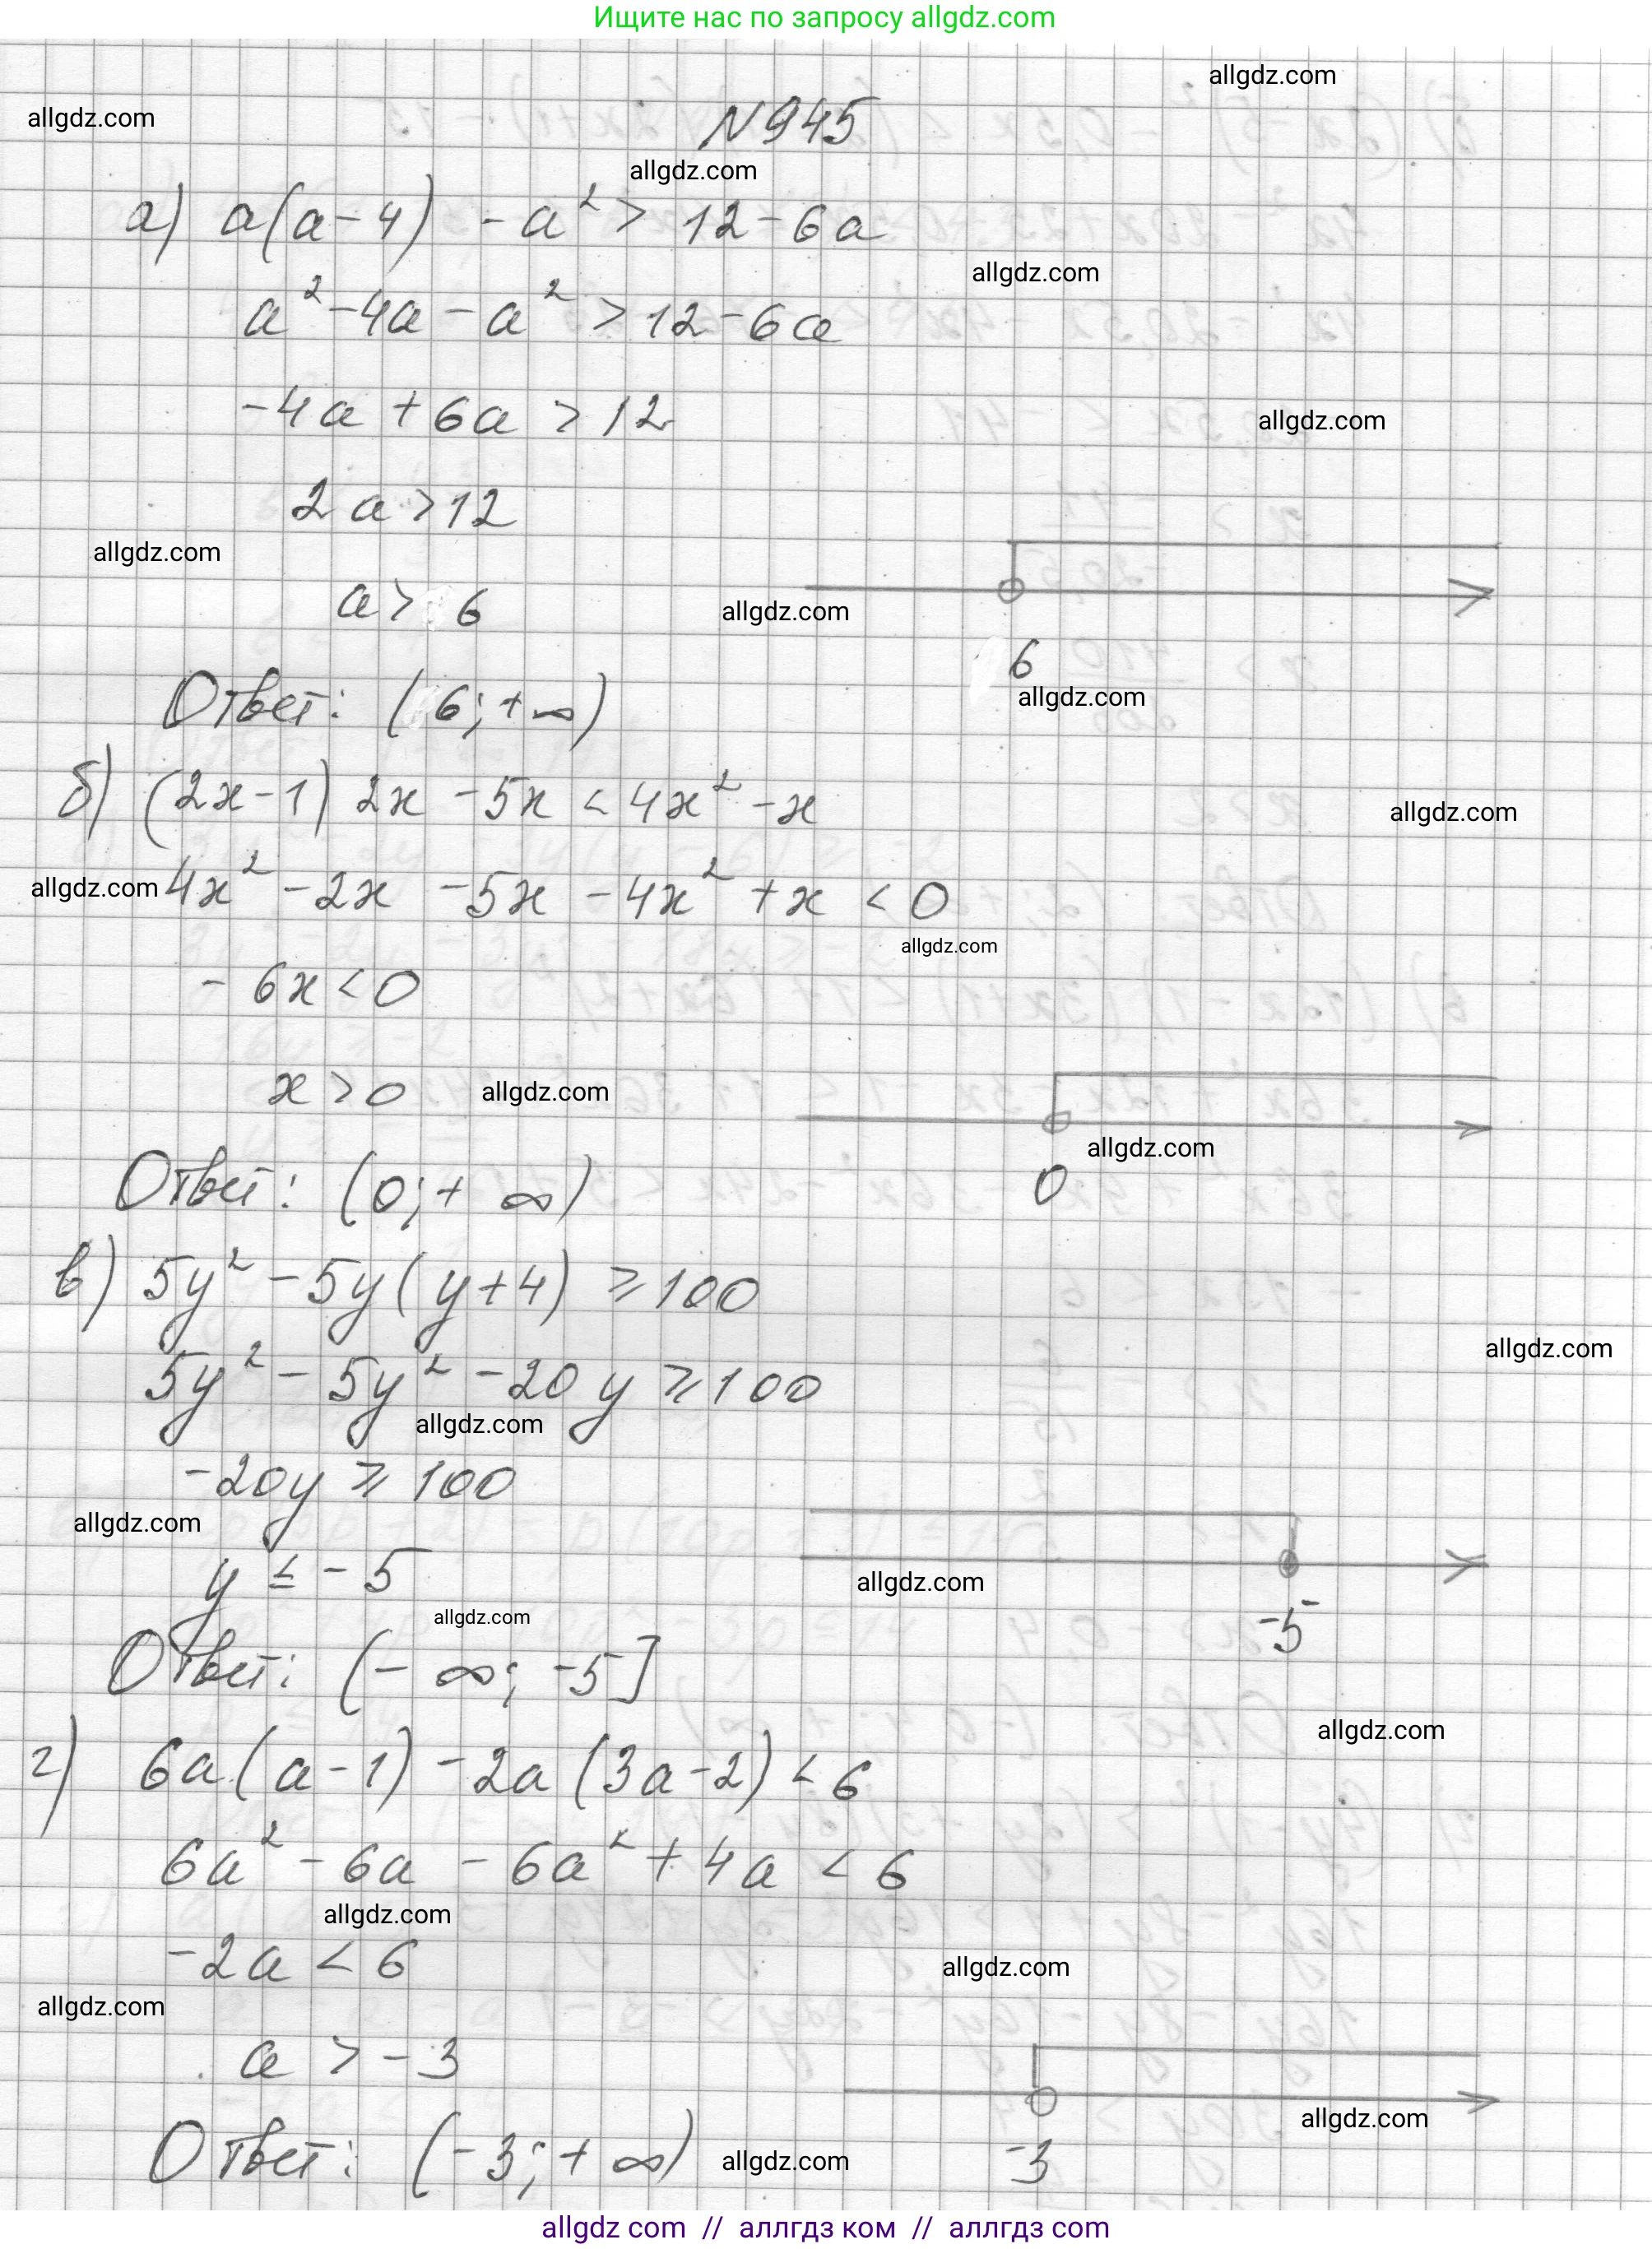 Ищите нас по запросу allgdz.com
allgdz.com
allgdz.com
N945
allgdz.com
а) a(a-4) - a² > 12 - 6a
allgdz.com
a² - 4a - a² > 12 - 6a
-4a + 6a > 12
allgdz.com
2a > 12
allgdz.com
a > 6
allgdz.com
6
allgdz.com
Ответ: (6; +∞)
б) (2x-1) 2x - 5x < 4x² - x
allgdz.com
allgdz.com
4x² - 2x - 5x - 4x² + x < 0
allgdz.com
- 6x < 0
x > 0
allgdz.com
allgdz.com
0
Ответ: (0; + ∞)
в) 5y² - 5y(y+4) ⩾ 100
allgdz.com
5y² - 5y² - 20y ⩾ 100
allgdz.com
-20y ⩾ 100
allgdz.com
y ≤ -5
allgdz.com
-5
allgdz.com
Ответ: (- ∞; -5]
allgdz.com
г) 6a(a-1) - 2a(3a-2) < 6
6a² - 6a - 6a² + 4a < 6
allgdz.com
-2a < 6
allgdz.com
allgdz.com
a > -3
allgdz.com
-3
Ответ: (-3; + ∞)
allgdz.com
allgdz com // аллгдз ком // аллгдз com